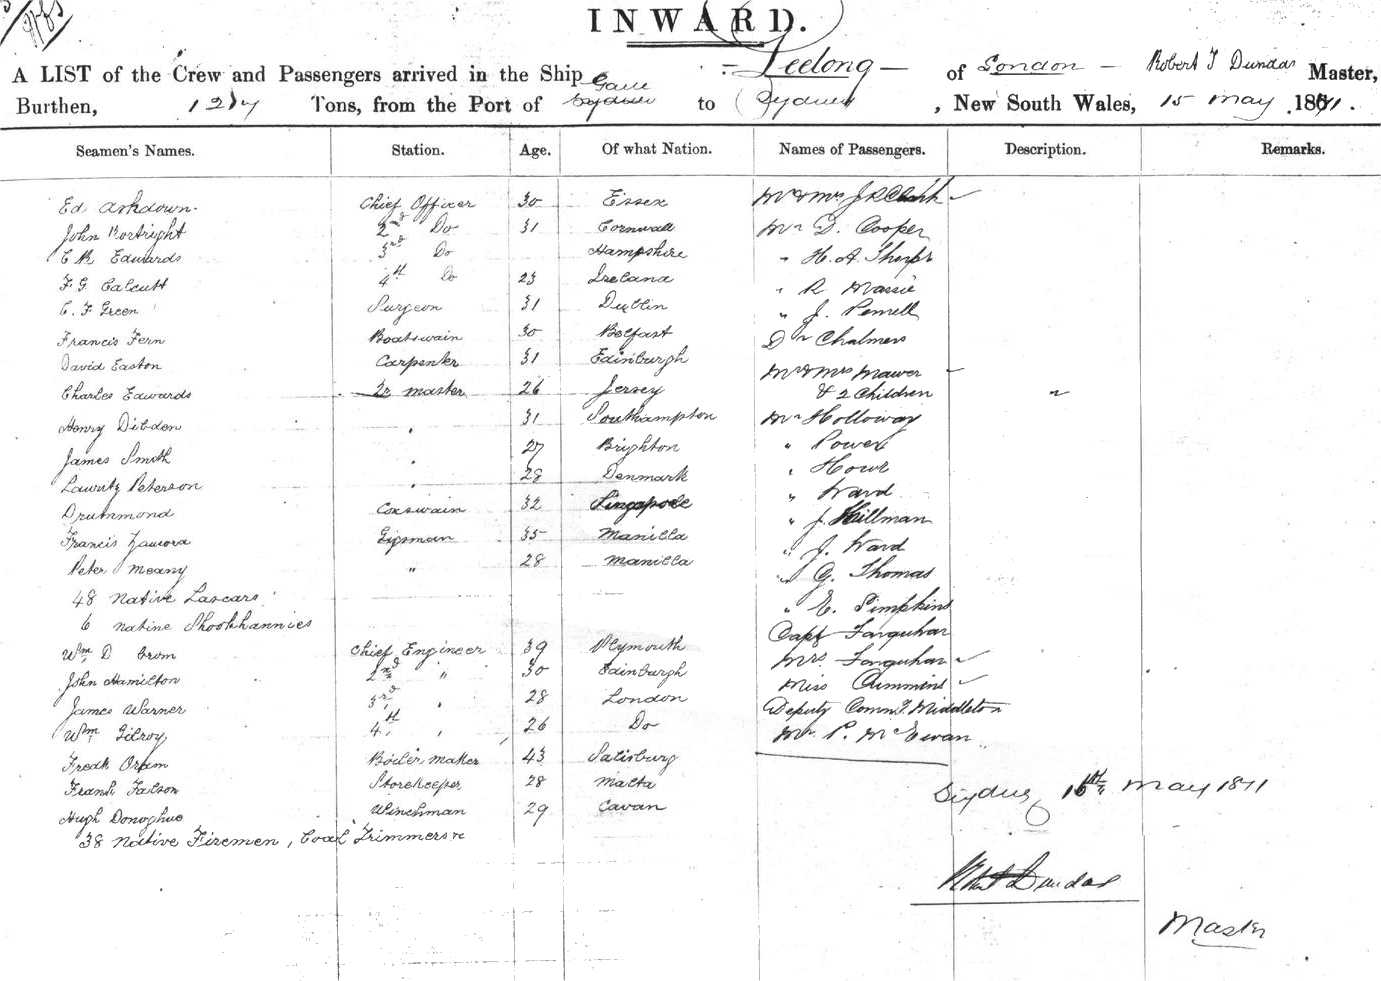 INWARD.
A LIST of the Crew and Passengers arrived in the Ship Geelong of London Robert T Dundas Master,
Burthen, 1217 Tons, from the Port of Galle to Sydney, New South Wales, 15 May 1871.
Seamen's Names. Station. Age. Of what Nation. Names of Passengers. Description. Remarks.
Ed Ashdown Chief Officer 30 Essex Mr & Mrs J R
John Bortright 2nd Do 31 Cornwall Mr D. Cooper
C M Edwards 3rd Do Hampshire " H. A.
F G Calcutt 4th Do 23 Ireland " R Massie
C. F Green Surgeon 31 Dublin " J. Pennell
Francis Fern Boatswain 30 Belfast Dr Chalmers
David Easton Carpenter 31 Edinburgh Mr & Mrs Mawer
Charles Edwards Qr master 26 Jersey & 2 Children "
Henry Dibden " 31 Southampton Mr Holloway
James Smith " 27 Brighton " Power
Lauritz Peterson " 28 Denmark " Howe
Drummond Coxswain 32 Singapore " Ward
Francis Zamora 35 Manilla " J. Hillman
Peter Meany " 28 Manilla " J. Ward
48 Native Lascars " G. Thomas
6 native " E. Simpkins
Capt Farquhar
Wm D Crum Chief Engineer 39 Plymouth Mrs Farquhar
John Hamilton 2nd " 30 Edinburgh Miss Cummins
James Warner 3rd " 28 London Deputy Comm. Middleton
Wm Gilroy 4th " 26 Do Mr P. McEwan
Fredk Oram Boiler maker 43 Salisbury
Frank Falson Storekeeper 28 Malta
Hugh Donoghue Winchman 29 Cavan
38 Native Firemen, Coal Trimmers
Sydney 16th May 1871
Robt T Dundas
Master